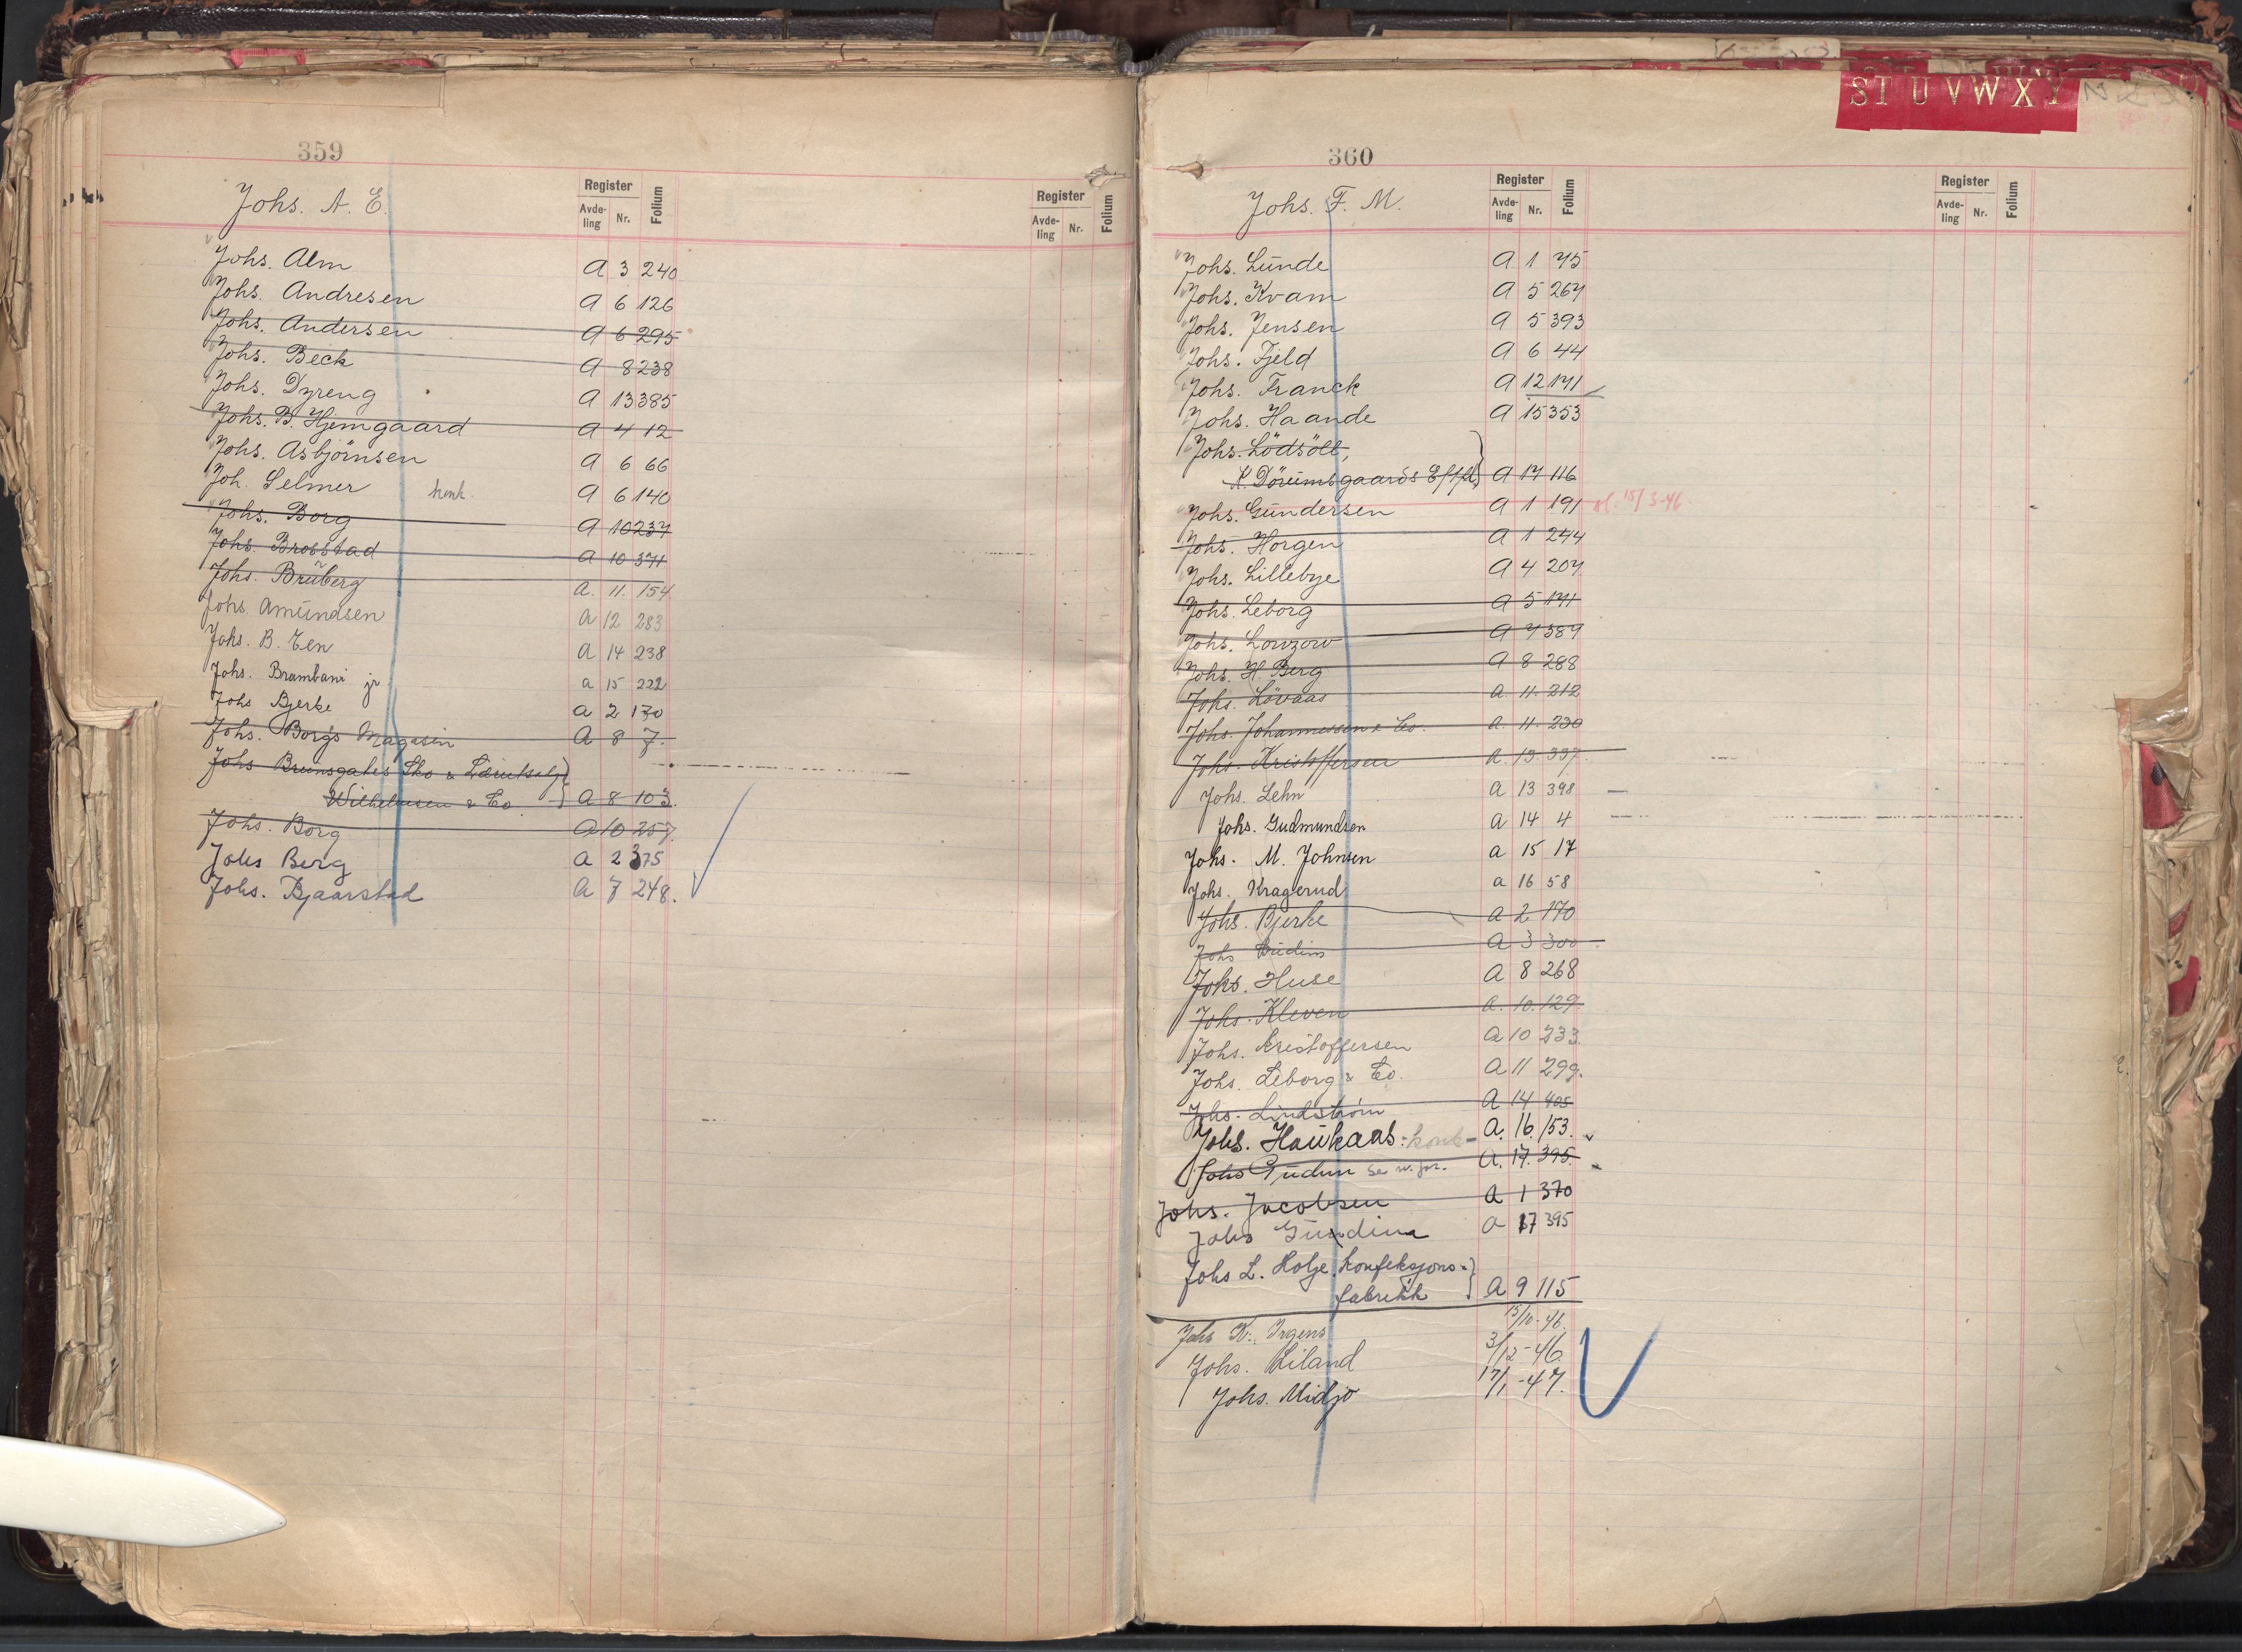 359
Johs. A. E.
Register
Avde-ling Nr. Folium
Register
Avde-ling Nr. Folium
Johs. Alm A 3 240
Johs. Andresen A 6 126
Johs. Andersen A 6 295
Johs. Beck A 8 238
Johs. Dyreng A 13 385
Johs. B. Hjemgaard A 4 12
Johs. Asbjörnsen A 6 66
Joh. Selmer konk. A 6 140
Johs. Borg A 10 237
Johs. Brosstad A 10 371
Johs. Brüberg A. 11. 154
Johs. Amundsen A 12 283
Johs. B. Een A 14 238
Johs. Brambani jr a 15 222
Johs Bjerke A 2 170
Johs. Borgs Magasin A 8 7.
Johs Brunsgates Sko & Lærutsalg
Wilhelmsen & Co A 8 103.
Johs. Borg A 10 257.
Johs Berg A 2 375
Johs. Bjaarstad A 7 248.
STUVWXY
360
Johs. F. M.
Register
Avde-ling Nr. Folium
Register
Avde-ling Nr. Folium
Johs. Lunde A 1 75
Johs. Kvam A 5 267
Johs. Jensen A 5 393
Johs. Fjeld A 6 44
Johs. Franck A 12 171
Johs. Haande A 15 353
Johs.
A 17 116
Johs. Gundersen A 1 191 15/3-46
Johs. Horgen A 1 244
Johs. Lillebye A 4 207
Johs. Leborg A 5 171
Johs. Lowzow A 7 387
Johs. H. Berg A 8 288
Johs. Lövaas A. 11. 212
Johs. Johannessen & Co. A. 11. 230
Johs. Kristoffersen A. 13. 337.
Johs. Lehn A 13 398
Johs. Gudmundsen A 14 4
Johs. M. Johnsen a 15 17
Johs. Kragerud a 16 58
Johs. Bjerke A 2 170
Johs A 3 300
Johs. Huse A 8 268
Johs. Kleven A. 10. 129.
Johs. Kristoffersen A 10 233.
Johs. Leborg & Co. A 11 299.
Johs. Lindström A 14 405
Johs. Haukaas: konk- A. 16. 153.
Johs Gudim A. 17. 395.
Johs. Jacobsen A 1 370
Johs Gudim A 17 395
Johs L. Holje. Konfeksjons-
fabrikk A 9 115
Johs K. Irgens 15/10-46.
Johs. Liland 3/12-46.
Johs. Midjo 17/1-47.